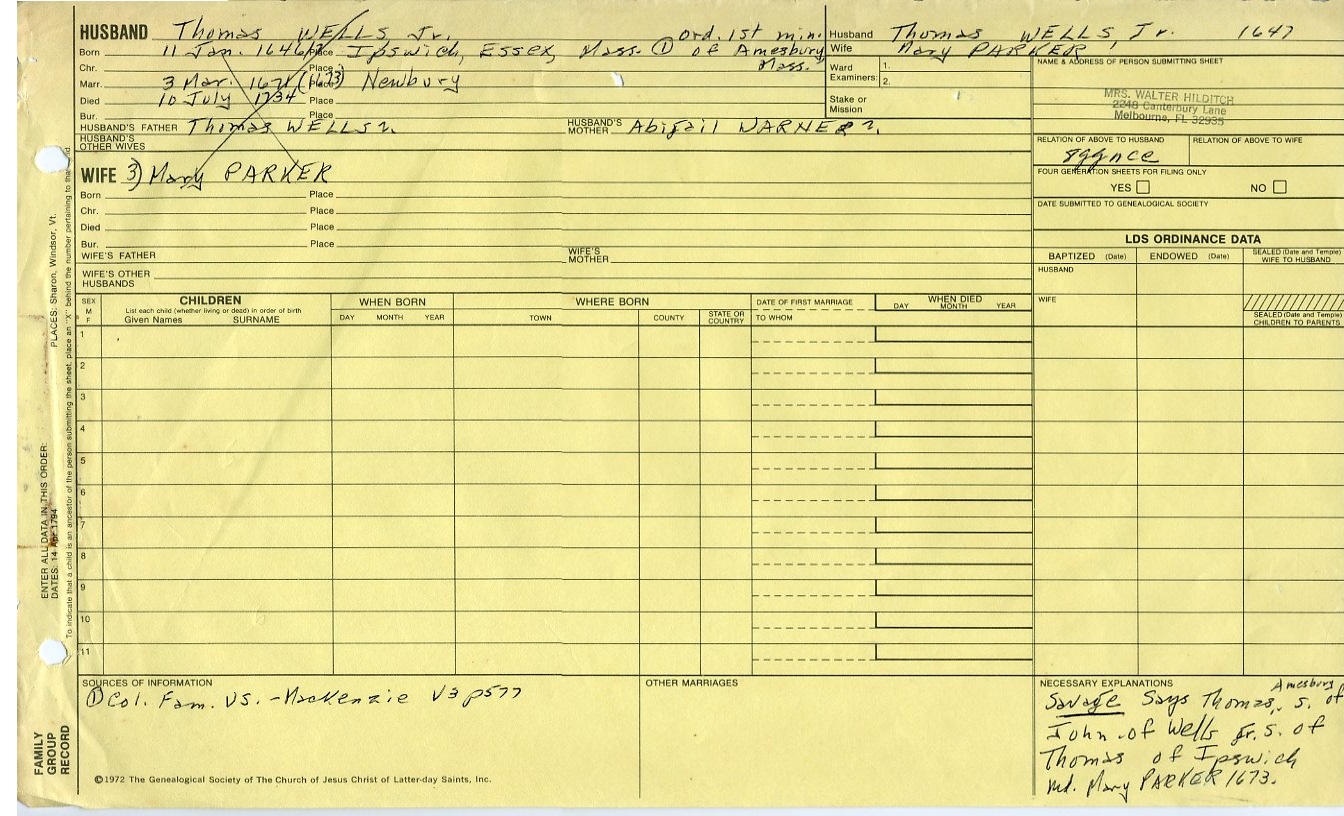 HUSBAND Thomas WELLS Jr. ord. 1st min.
Born 11 Jan. 1646/7 Place Ipswich, Essex, Mass. ① of Amesbury
Chr. Place Mass.
Marr. 3 Mar. 1671 (1673) Place Newbury
Died 10 July 1734 Place
Bur. Place
HUSBAND'S FATHER Thomas WELLS ?. HUSBAND'S MOTHER Abigail WARNER ?.
HUSBAND'S OTHER WIVES
WIFE 3) Mary PARKER
Born Place
Chr. Place
Died Place
Bur. Place
WIFE'S FATHER WIFE'S MOTHER
WIFE'S OTHER HUSBANDS
Husband Thomas WELLS, Jr. 1647
Wife Mary PARKER
Ward Examiners: 1.
2.
Stake or Mission
NAME & ADDRESS OF PERSON SUBMITTING SHEET
MRS. WALTER HILDITCH
2248 Canterbury Lane
Melbourne, FL 32935
RELATION OF ABOVE TO HUSBAND RELATION OF ABOVE TO WIFE
8ggnce
FOUR GENERATION SHEETS FOR FILING ONLY
YES NO
DATE SUBMITTED TO GENEALOGICAL SOCIETY
LDS ORDINANCE DATA
BAPTIZED (Date) ENDOWED (Date) SEALED (Date and Temple) WIFE TO HUSBAND
HUSBAND
WIFE
SEALED (Date and Temple) CHILDREN TO PARENTS
SEX M F CHILDREN WHEN BORN WHERE BORN DATE OF FIRST MARRIAGE WHEN DIED
List each child (whether living or dead) in order of birth
Given Names SURNAME DAY MONTH YEAR TOWN COUNTY STATE OR COUNTRY TO WHOM DAY MONTH YEAR
1
2
3
4
5
6
7
8
9
10
11
SOURCES OF INFORMATION
① Col. Fam. US. - MacKenzie V3 p577
OTHER MARRIAGES
NECESSARY EXPLANATIONS
Amesbury
Savage Says Thomas, s. of
John of Wells Jr. s. of
Thomas of Ipswich
md. Mary PARKER 1673.
©1972 The Genealogical Society of The Church of Jesus Christ of Latter-day Saints, Inc.
FAMILY GROUP RECORD
ENTER ALL DATA IN THIS ORDER:
DATES: 14 Apr 1794
PLACES: Sharon, Windsor, Vt.
To indicate that a child is an ancestor of the person submitting the sheet, place an "X" behind the number pertaining to that child.